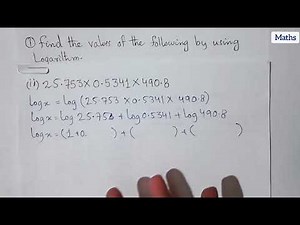 Maths
① Find the values of the following by using
Logarithm.
(ii) 25.753 × 0.5341 × 490.8
log x = log (25.753 × 0.5341 × 490.8)
log x = log 25.753 + log 0.5341 + log 490.8
log x = (1+0.        ) + (        ) + (        )